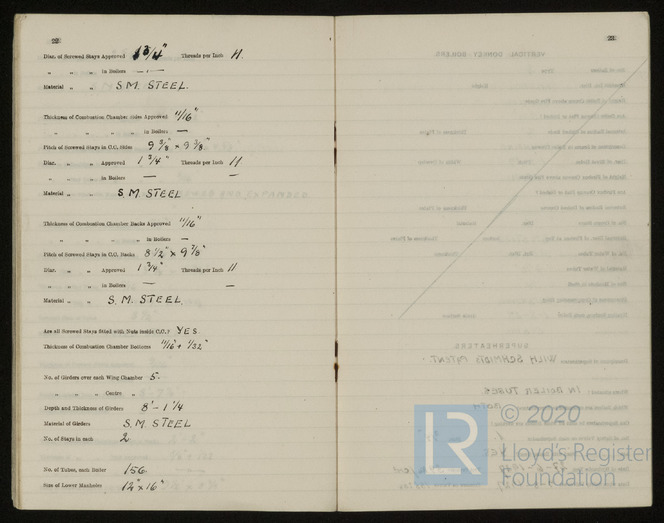 22
Diar. of Screwed Stays Approved 1 3/4" Threads per Inch 11.
" " " in Boilers — . —
Material " " S.M. STEEL.
Thickness of Combustion Chamber Sides Approved 11/16"
" " " " in Boilers —
Pitch of Screwed Stays in C.C. Sides 9 3/8" × 9 3/8".
Diar. " " Approved 1 3/4" Threads per Inch 11
" " " in Boilers — —
Material " " S.M. STEEL
Thickness of Combustion Chamber Backs Approved 11/16"
" " " " in Boilers —
Pitch of Screwed Stays in C.C. Backs 8 1/2" × 9 3/8"
Diar. " " Approved 1 3/4" Threads per Inch 11
" " " in Boilers — —
Material " " S.M. STEEL.
Are all Screwed Stays fitted with Nuts inside C.C.? YES.
Thickness of Combustion Chamber Bottoms 11/16" + 1/32"
No. of Girders over each Wing Chamber 5.
" " " Centre "
Depth and Thickness of Girders 8" - 1 1/4
Material of Girders S.M STEEL
No. of Stays in each 2
No. of Tubes, each Boiler 156
Size of Lower Manholes 12" × 16"
23
LR © 2020
Lloyd's Register
Foundation